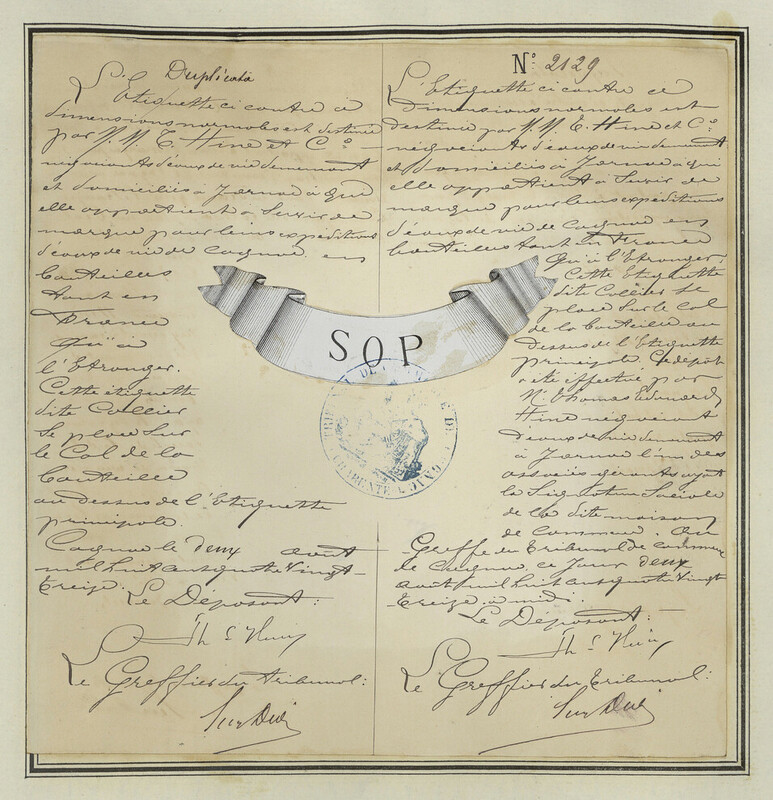 Duplicata
L'Etiquette ci contre de
dimensions normales est destinée
par M.M. T. Hine et Co
négociants d'eaux de vie demeurant
et domiciliés à Jarnac à qui
elle appartient à servir de
marque pour leurs expéditions
d'eaux de vie de Cognac en
bouteilles
tant en
France
qu'à
l'Etranger.
Cette étiquette
dite Collier
se place sur
le Col de la
bouteille
au dessus de l'Etiquette
principale.
Cognac le deux août
mil huit cent quatre vingt
treize.
Le Déposant:
Th E Hine
Le Greffier du Tribunal:
No 2129
L'Etiquette ci contre de
dimensions normales est
destinée par M.M. T. Hine et Co
négociants d'eaux de vie demeurant
et domiciliés à Jarnac à qui
elle appartient à servir de
marque pour leurs expéditions
d'eaux de vie de Cognac en
bouteilles tant en France
qu'à l'Etranger.
Cette Etiquette
dite Collier se
place sur le Col
de la bouteille au
dessus de l'Etiquette
principale. Ce dépôt
a été effectué par
Mr Thomas Edouard
Hine négociant
d'eaux de vie demeurant
à Jarnac l'un des
associés gérants ayant
la Signature Sociale
de la dite maison
de Commerce. Au
Greffe du Tribunal de Commerce
de Cognac, ce jour deux
août mil huit cent quatre vingt
treize à midi.
Le Déposant:
Th E Hine
Le Greffier du Tribunal:
SOP
TRIBUNAL DE COMMERCE DE
COGNAC
CHARENTE